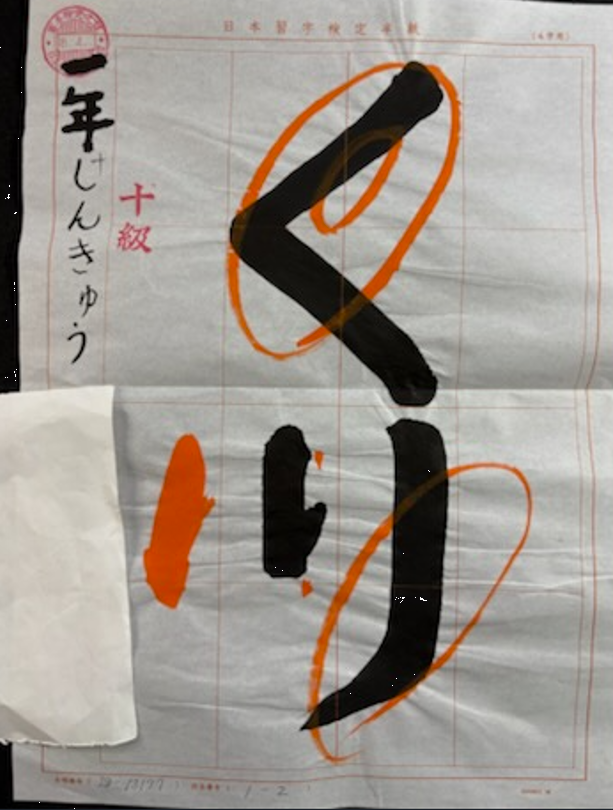 日本習字検定半紙
くり
十級
一年じんきゅう
1-2